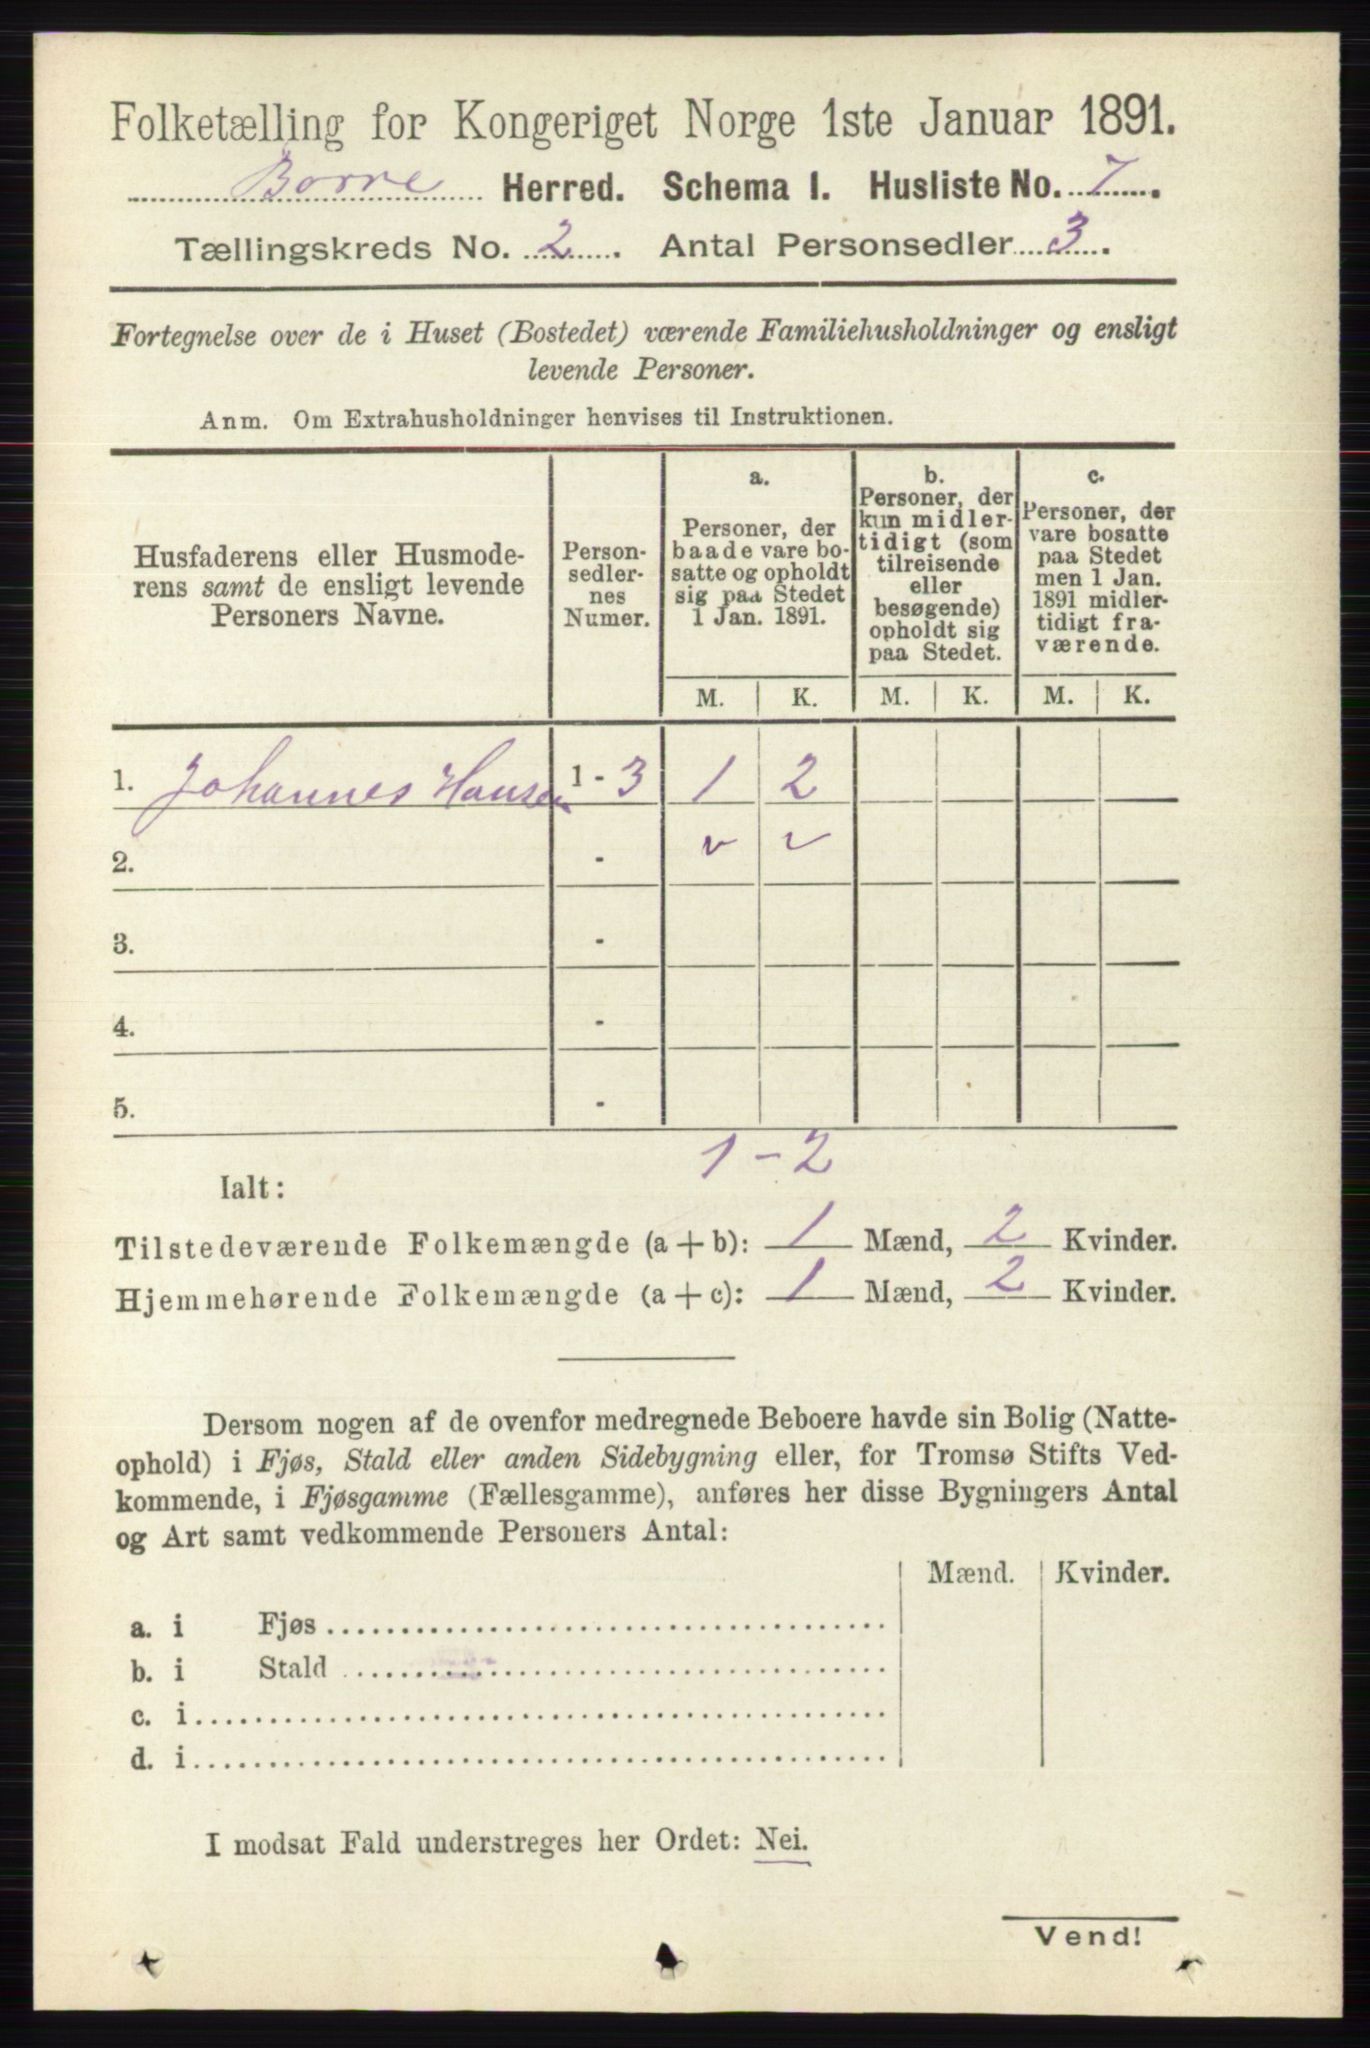 Folketælling for Kongeriget Norge 1ste Januar 1891.
Borre Herred. Schema I. Husliste No. 7.
Tællingskreds No. 2. Antal Personsedler 3.
Fortegnelse over de i Huset (Bostedet) værende Familiehusholdninger og ensligt
levende Personer.
Anm. Om Extrahusholdninger henvises til Instruktionen.
Husfaderens eller Husmode-
rens samt de ensligt levende
Personers Navne.
Person-
sedler-
nes
Numer.
a.
Personer, der
baade vare bo-
satte og opholdt
sig paa Stedet
1 Jan. 1891.
b.
Personer, der
kun midler-
tidigt (som
tilreisende
eller
besøgende)
opholdt sig
paa Stedet.
c.
Personer, der
vare bosatte
paa Stedet
men 1 Jan.
1891 midler-
tidigt fra-
værende.
M. K. M. K. M. K.
1. Johannes Hansen 1 - 3 1 2
2. - v v
3. -
4. -
5. -
1 - 2
Ialt:
Tilstedeværende Folkemængde (a + b): 1 Mænd, 2 Kvinder.
Hjemmehørende Folkemængde (a + c): 1 Mænd, 2 Kvinder.
Dersom nogen af de ovenfor medregnede Beboere havde sin Bolig (Natte-
ophold) i Fjøs, Stald eller anden Sidebygning eller, for Tromsø Stifts Ved-
kommende, i Fjøsgamme (Fællesgamme), anføres her disse Bygningers Antal
og Art samt vedkommende Personers Antal:
Mænd. Kvinder.
a. i Fjøs
b. i Stald
c. i
d. i
I modsat Fald understreges her Ordet: Nei.
Vend!